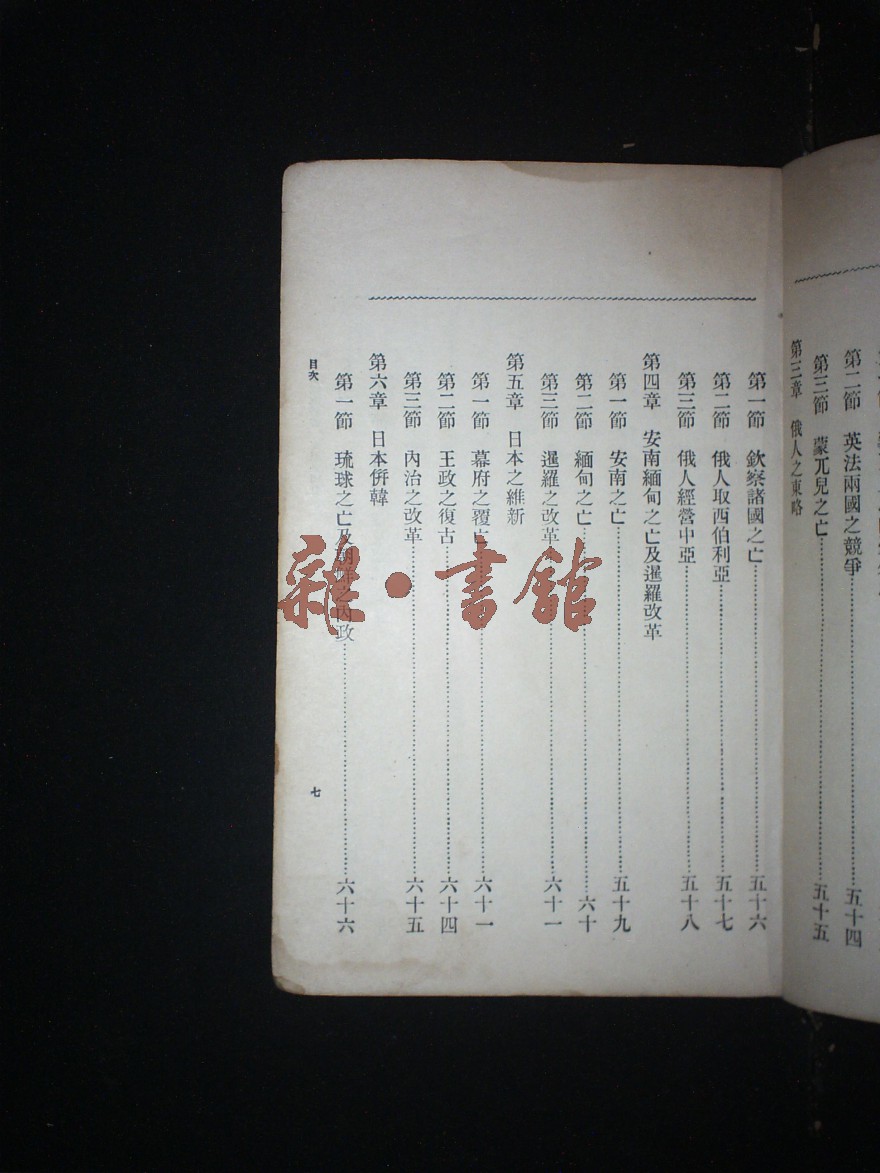 第二節　英法兩國之競爭……五十四
第三節　蒙兀兒之亡……五十五
第三章　俄人之東略
第一節　欽察諸國之亡……五十六
第二節　俄人取西伯利亞……五十七
第三節　俄人經營中亞……五十八
第四章　安南緬甸之亡及暹羅改革
第一節　安南之亡……五十九
第二節　緬甸之亡……六十
第三節　暹羅之改革……六十一
第五章　日本之維新
第一節　幕府之覆亡……六十一
第二節　王政之復古……六十四
第三節　內治之改革……六十五
第六章　日本併韓
第一節　琉球之亡及朝鮮之內政……六十六
目次　七
雜·書館